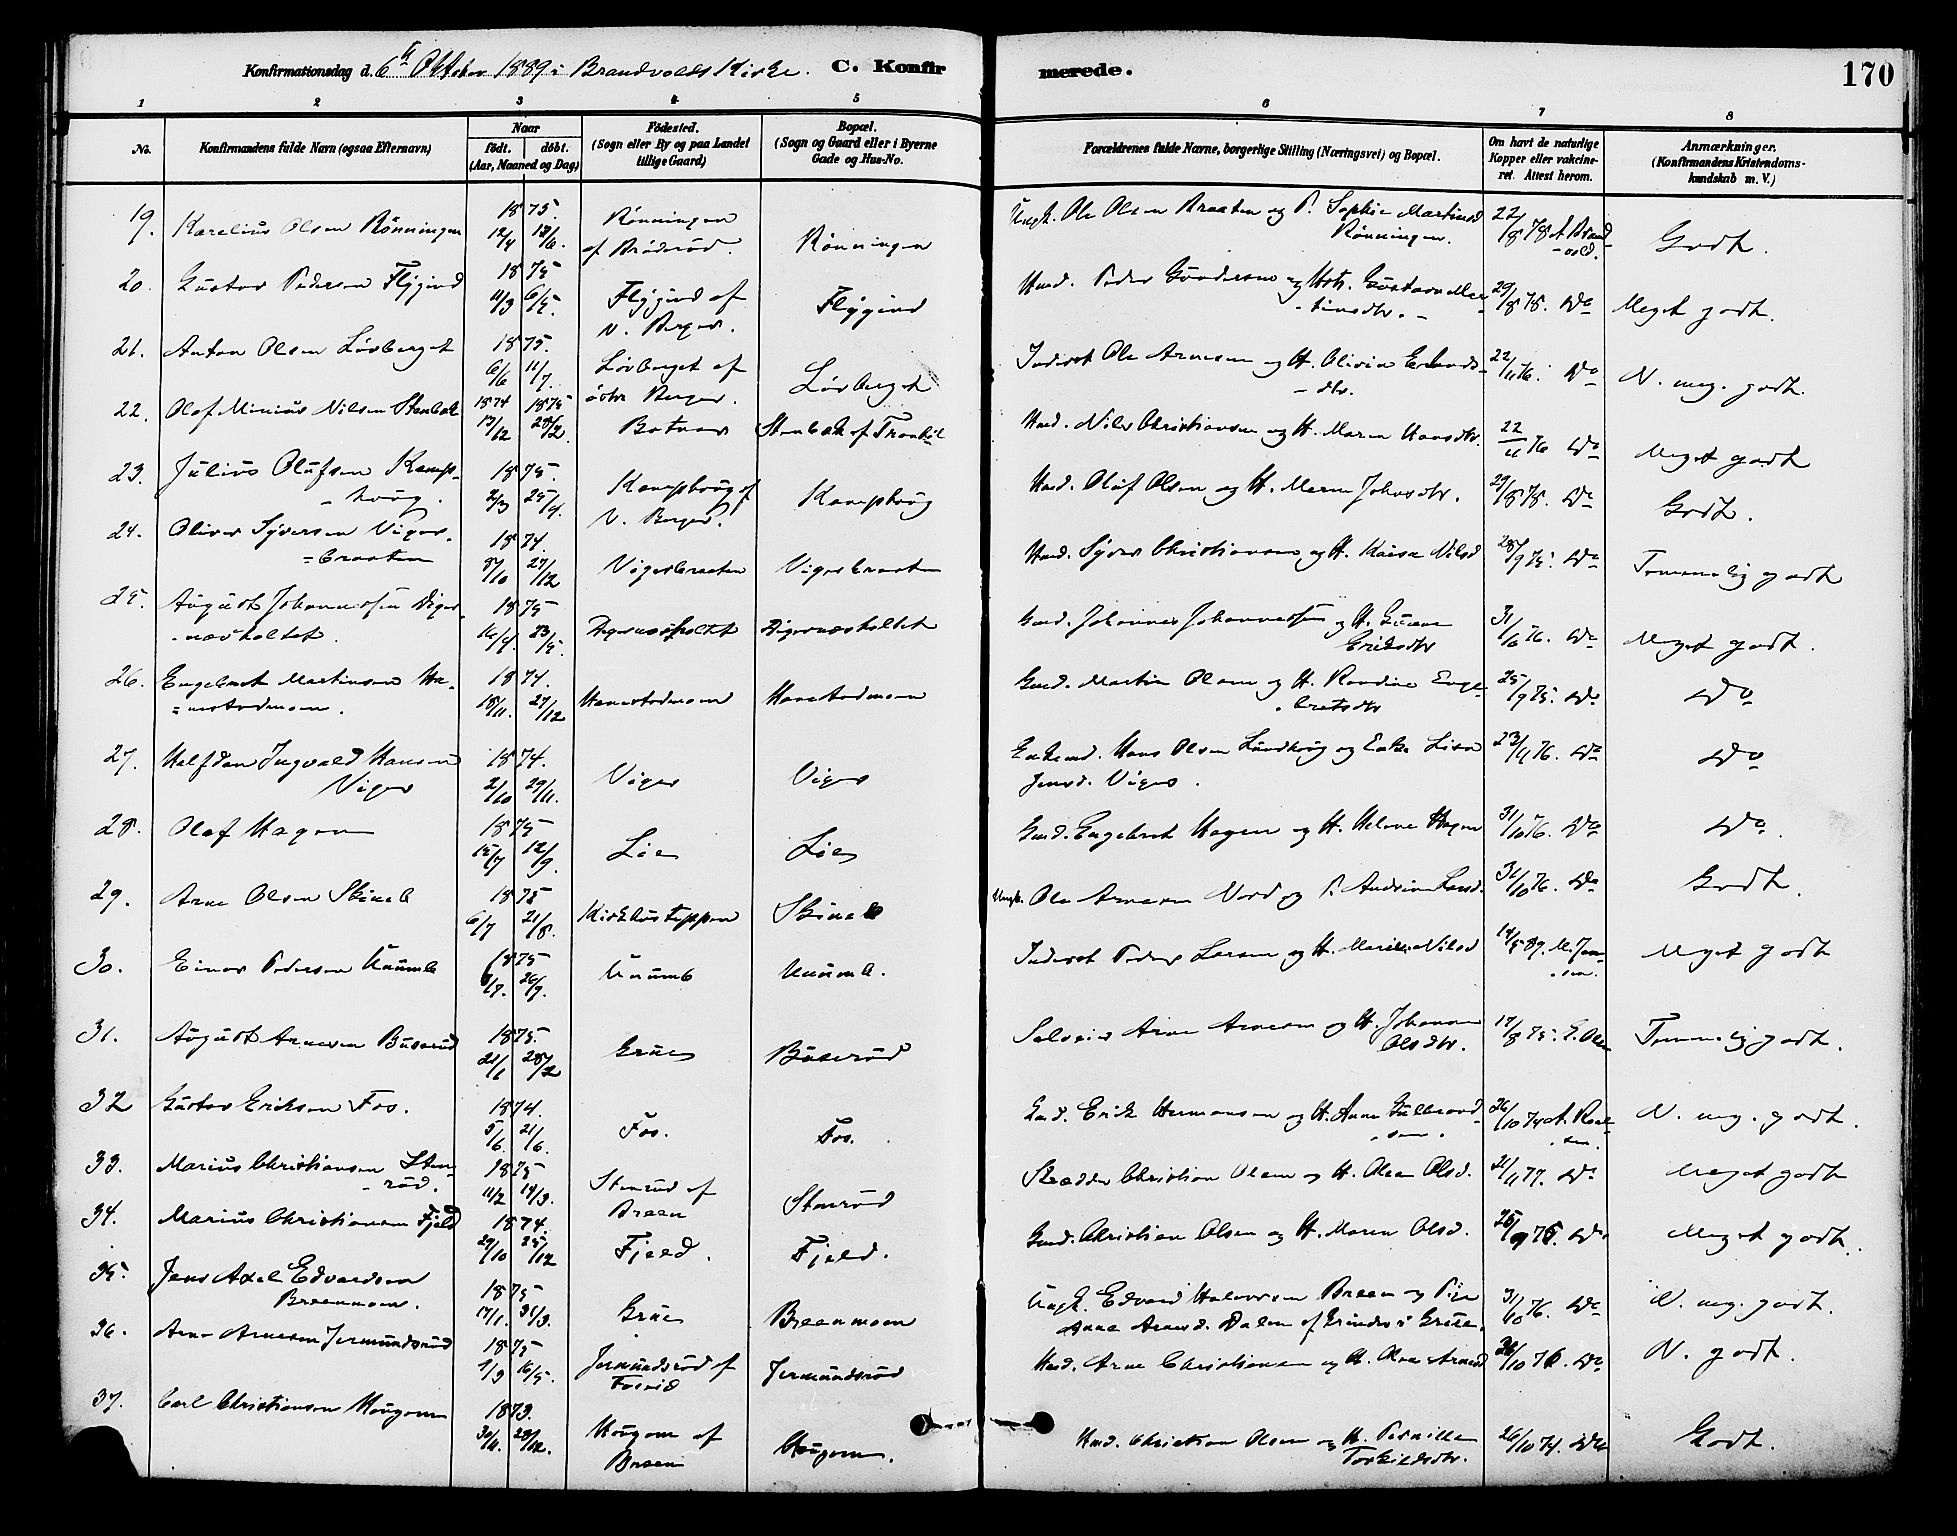 Konfirmationsdag d. 6te Oktober 1889 i Brandvolds Kirke. C. Konfirmerede. 170
1 2 3 4 5 6 7 8
No. Konfirmandens fulde Navn (ogsaa Efternavn) Naar födt. döbt. (Aar, Maaned og Dag) Födested. (Sogn eller By og paa Landet tillige Gaard) Bopæl. (Sogn og Gaard eller i Byerne Gade og Hus-No. Forældrenes fulde Navne, borgerlige Stilling (Næringsvei) og Bopæl. Om havt de naturlige Kopper eller vakcineret. Attest herom. Anmærkninger. (Konfirmandens Kristendomskundskab m. V.)
19. Karelius Olsen Rønningen 1875. 12/4 13/6. Rønningen af Brødrød. Rønningen Ungk. Ole Olsen Braaten og P. Sophie Martinsd Rønningen. 22/8 78 A Brandvold. Godt.
20. Gustav Pedersen Flygind 1875 11/3 6/5. Flygind af N. Berger. Flygind Husd. Peder Gundersen og Hstr. Gustava Martinsdtr. 29/8 78. Do Meget godt.
21. Anton Olsen Løvberget 1875. 6/6 11/7. Løvberget af östre Berger. Løvberget Inderst Ole Arnesen og H. Olivia Erlandsdtr. 22/11 76. Do N. meg. godt.
22. Olaf Minius Nilsen Stenbæk 1874 1875 13/12 28/2. Botner Stenbæk af Tranbøl Husd. Nils Christiansen og H. Maren Hansdtr. 22/11 76 Do Meget godt
23. Julius Olufsen Kampshoug. 1875. 2/3 25/4. Kampshoug af N. Berger. Kampshoug Husd. Oluf Olsen og H. Maren Johnsdtr. 29/8 78. Do Godt.
24. Oliver Syversen Vigersbraaten 1874. 8/10 27/12 Vigersbraaten Vigersbraaten Husd. Syver Christiansen og H. Kaisa Nilsd 28/9 75. Do Temmelig godt
25. August Johannessen Digernæsholtet. 1875 16/4. 23/5. Digernæsholtet Digernæsholtet Gmd. Johannes Johannessen og H. Eriksdtr 31/10 76. Do Meget godt.
26. Engebret Martinsen Hanestadmoen. 1874. 18/11. 27/12 Hanestadmoen Hanestadmoen Gmd. Martin Olsen og H. Randine Engebretsdtr 25/9 75. Do Do
27. Halfdan Ingvald Hansen Viger 1874. 2/10 29/11. Viger Viger Enkemd. Hans Olsen Lundhoug og Enke Lisa Jensd. Viger. 23/11 76. Do Do
28. Olaf Hagen 1875 15/7 12/9. Lie Lie Gmd. Engebret Hagen og H. Helene Hagen 31/10 76. Do Do.
29. Arne Olsen Skineb 1875 6/7 21/8. Kirkhustuppen Skineb Ungk. Ole Arnesen Nord og P. Andrine Larsd. 31/10 76. Do Godt.
30. Einar Pedersen Uaumb 1875 Uaumb Uaumb. Inderst Peder Larsen og H. Marthe Nilsd 14/5 89. M. Jensen. Meget godt
31. August Arnesen Buserud 1875. 21/1 28/2 Grue Buserud Selveier Arne Arnesen og H. Johanne Olsdtr. 17/8 75. E. Olsen Temmelig godt.
32 Gustav Eriksen Fos. 1874. 5/6. 21/6. Fos. Fos. Gmd. Erik Hermansen og H. Anne Gulbrandsen. 26/10 74 N. meg. godt.
33. Marius Christiansen Stenrød. 1875 11/2 14/3. Stenrud af Breen Stenrud Skrædder Christian Olsen og H. Olea Olsd. 21/11 77. Do Meget godt
34. Marius Christiansen Fjeld 1874. 29/10 25/12 Fjeld. Fjeld. Gmd. Christian Olsen og H. Maren Olsd. 25/9 75. Do Meget godt.
35. Jens Axel Edvardsen Breenmoen. 1875 17/1. 31/3. Grue Breenmoen Ungk. Edvard Halvorsen Breen og Pige Anne Arnesd. Dalen af Grinder i Grue. 31/10 76. Do N. meg. godt.
36. Arne Arnesen Jermundsrud 1875 9/3 16/5. Jermundsrud af Fosvid Jermundsrud Husd. Arne Christiansen og H. Olea Arnesd 26/10 76. Do N. godt.
37. Carl Christiansen Hougom 1873. 30/11. 28/12. Hougom af Breen Hougom. Husd. Christian Olsen og H. Pernille Torkildsdtr. 26/10 74. Do Godt.